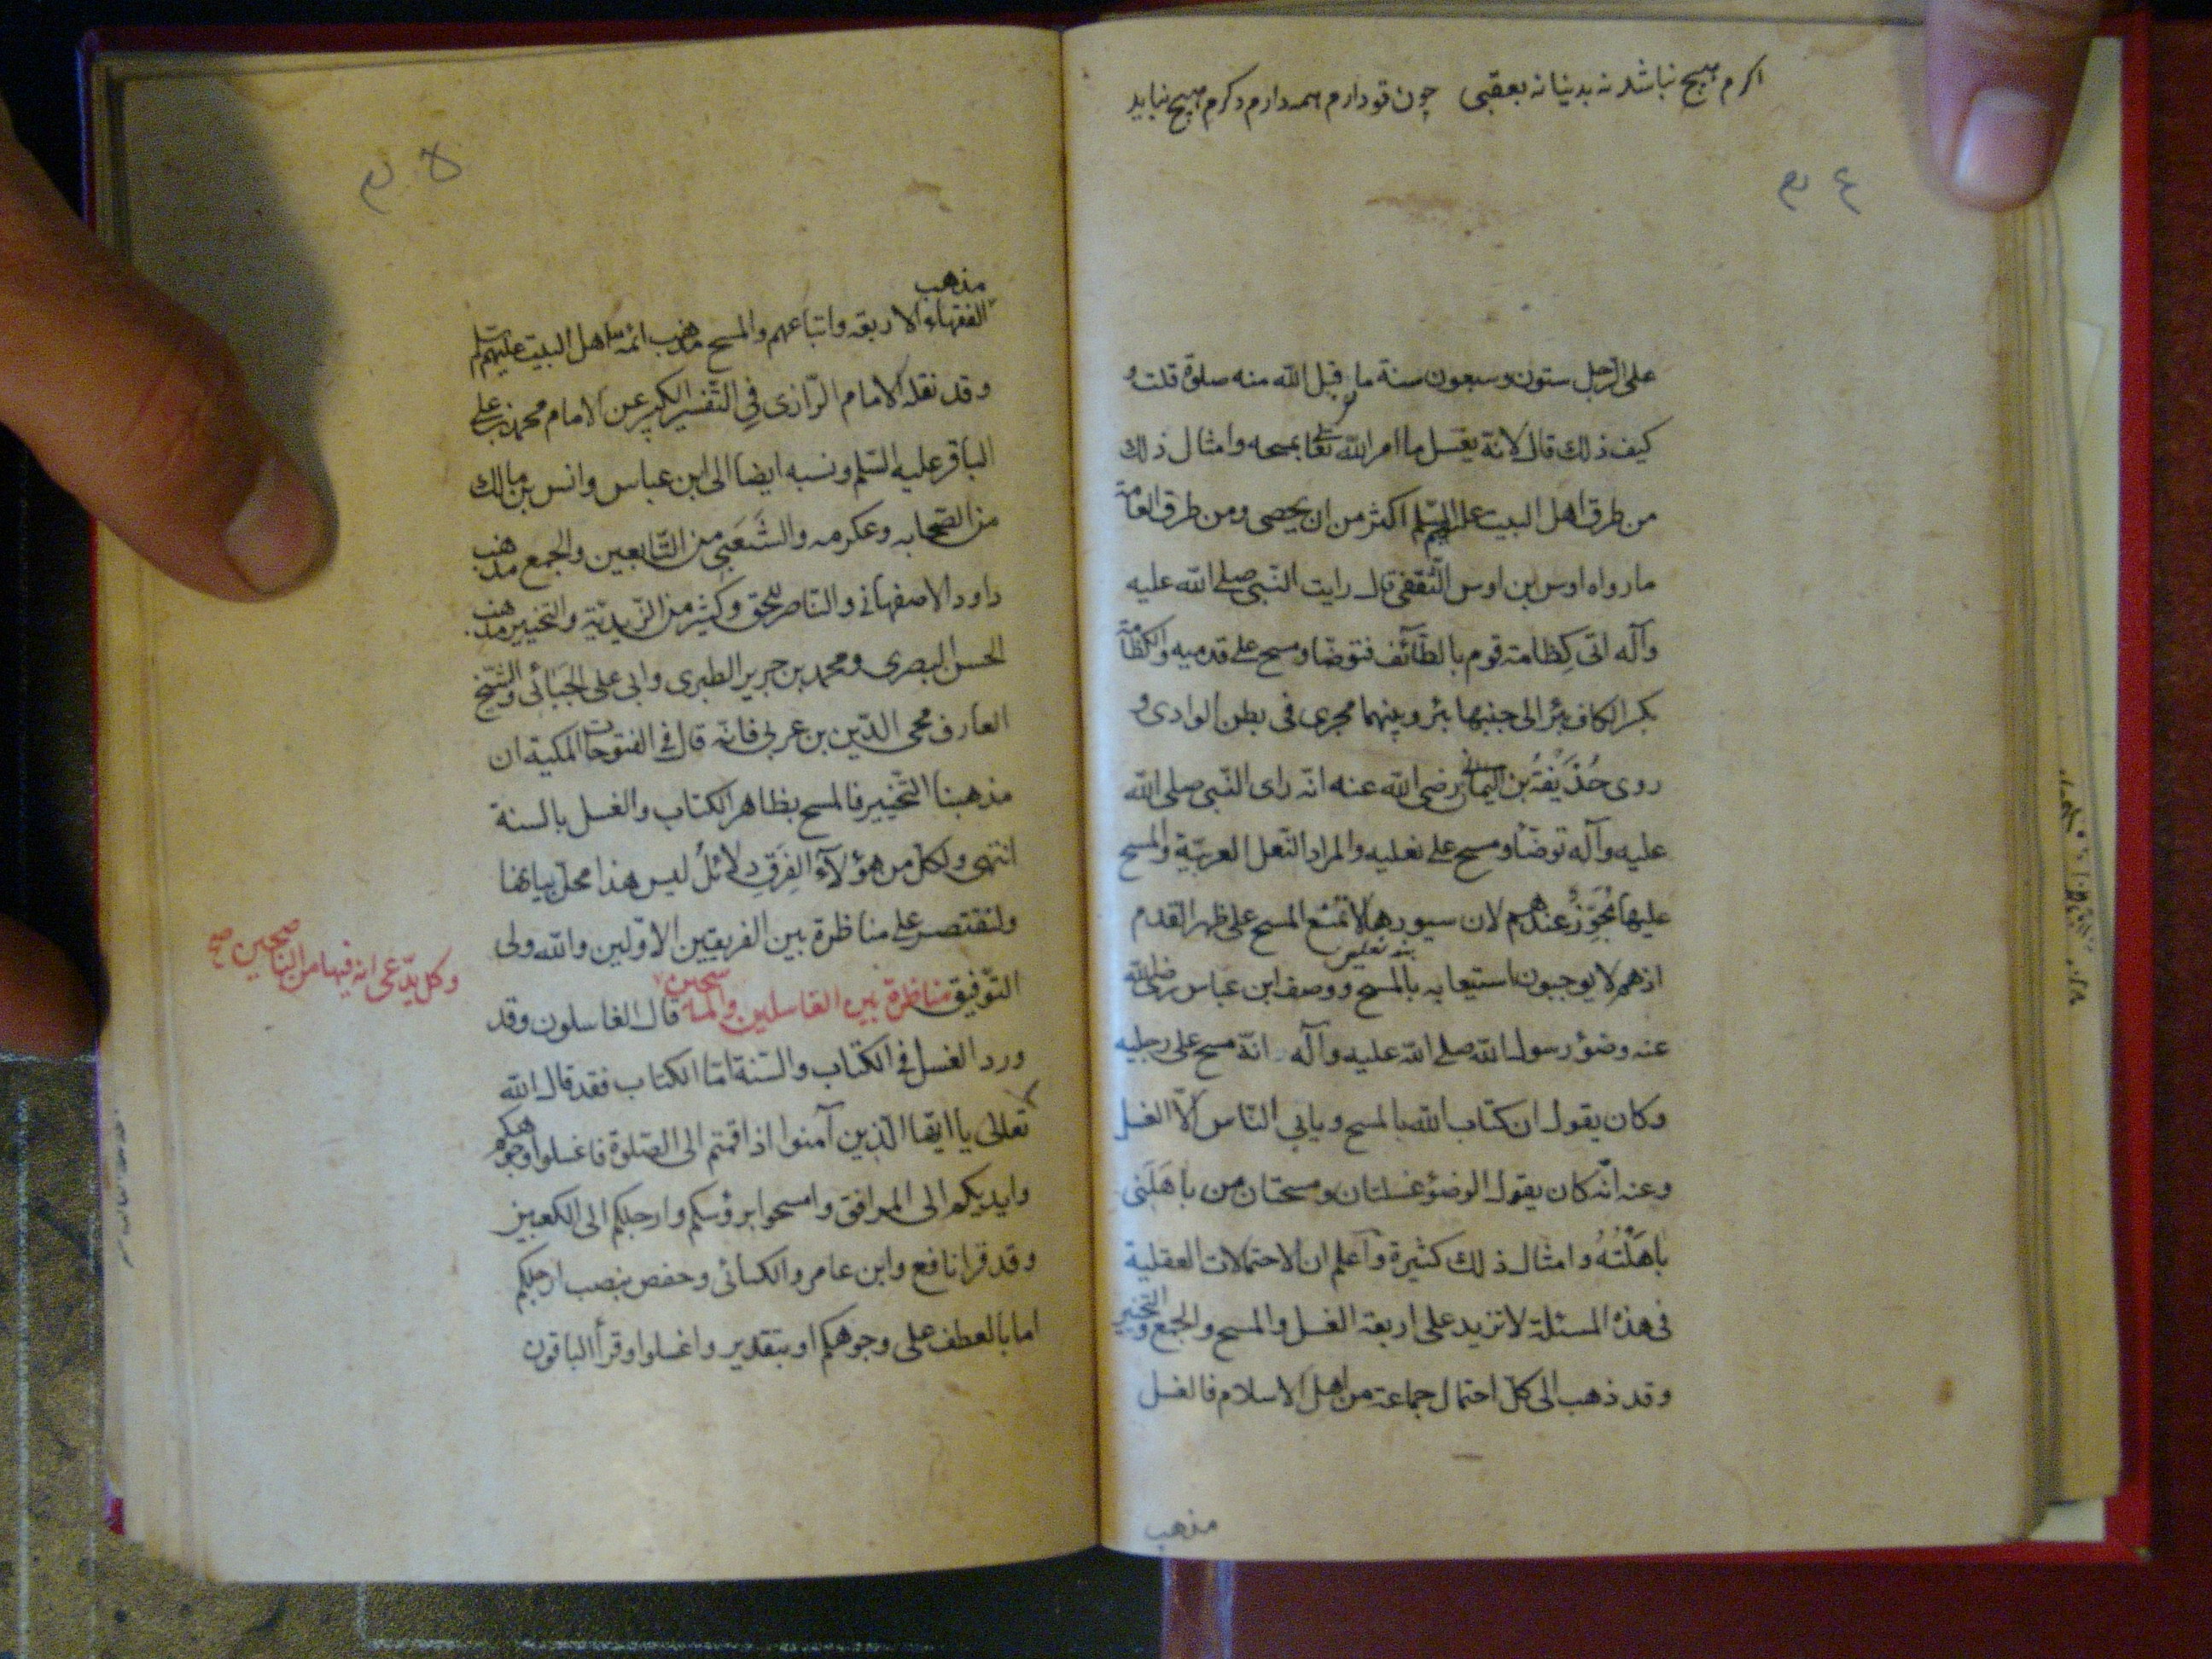 اكرم هيچ نباشد نه بدنيا نه بعقبى چون تو دارم همه دارم دكرم هيچ نبايد
على الرجل ستون وسبعون سنة ما قبل الله منه صلوة قلت و
كيف ذلك قال لانة يغسل ما امر الله تعالى بمسحه وامثال ذلك
من طرق اهل البيت عليهم السلم اكثر من ان يحصى ومن طرق العامة
مارواه اوس بن اوس الثقفى قال رايت النبى صلى الله عليه
وآله اتى كِظامة قوم بالطآئف فتوضا ومسح على قدميه والكظامة
بكسر الكاف بئر الى جنبها بئر وبينهما مجرى فى بطن الوادى و
روى حُذَيْفَةُ بن اليمان رضى الله عنه انه راى النبى صلى الله
عليه وآله توضأ ومسح على نعليه والمراد النعل العربيّة والمسح
عليها مُجَوَّزٌ عندهم لان سيورها لا تمنع المسح على ظهر القدم
بند نعلين
اذهم لا يوجبون استيعابه بالمسح ووصف ابن عباس رضى الله
عنه وضؤ رسول الله صلى الله عليه وآله انه مسح على رجليه
وكان يقول ان كتاب الله بالمسح ويابى الناس الّا الغسل
وعنه انّه كان يقول الوضؤ غسلتان ومسحتان من باهَلَنى
باهَلْتُهُ وامثال ذلك كثيرة وآعلم ان الاحتمالات العقلية
فى هذه المسئلة لا تزيد على اربعة الغسل والمسح والجمع والتخيير
وقد ذهب الى كل احتمال جماعة من اهل الاسلام فالغسل
مذهب
مذهب
الفقهاء الاربعة واتباعهم والمسح مذهب ائمة اهل البيت عليهم السلم
وقد نقله الامام الرّازى فى التّفسير الكبير عن الامام محمد بن على
الباقر عليه السّلم ونسبه ايضا الى ابن عباس وانس بن مالك
من الصّحابه وعكرمه والشَّعَبى من التّابعين والجمع مذهب
داود الاصفهانى والنّاصر للحق وكثير من الزّيديّة والتخيير مذهب
الحسن البصرى ومحمد بن جرير الطبرى وابى على الجَبَائى والشّيخ
العارف محى الدّين بن عربى فانّه قال فى الفتوحات المكية ان
مذهبنا التّخيير فالمسح بظاهر الكتاب والغسل بالسنة
انتهى ولكل من هؤلآء الفِرَقِ دلائلُ ليس هذا محل بيانها
ولنقتصر على مناظرة بين الفريقين الاوّلين والله ولى
التّوفيق مناظرة بين الغاسلين والماسحين قال الغاسلون وقد
وكل يدّعى انه فيها من الناصحين صح
ورد الغسل فى الكتاب والسّنة امّا الكتاب فقد قال الله
تعالى يا ايّها الّذين آمنوا اذا قمتم الى الصّلوة فاغسلوا وجوهكم
وايديكم الى المرافق وامسحوا برؤسكم وارجلكم الى الكعبين
وقد قرا نافع وابن عامر والكسائى وحفص بنصب ارجلكم
اما بالعطف على وجوهكم او بتقدير واغسلوا وقرأ الباقون